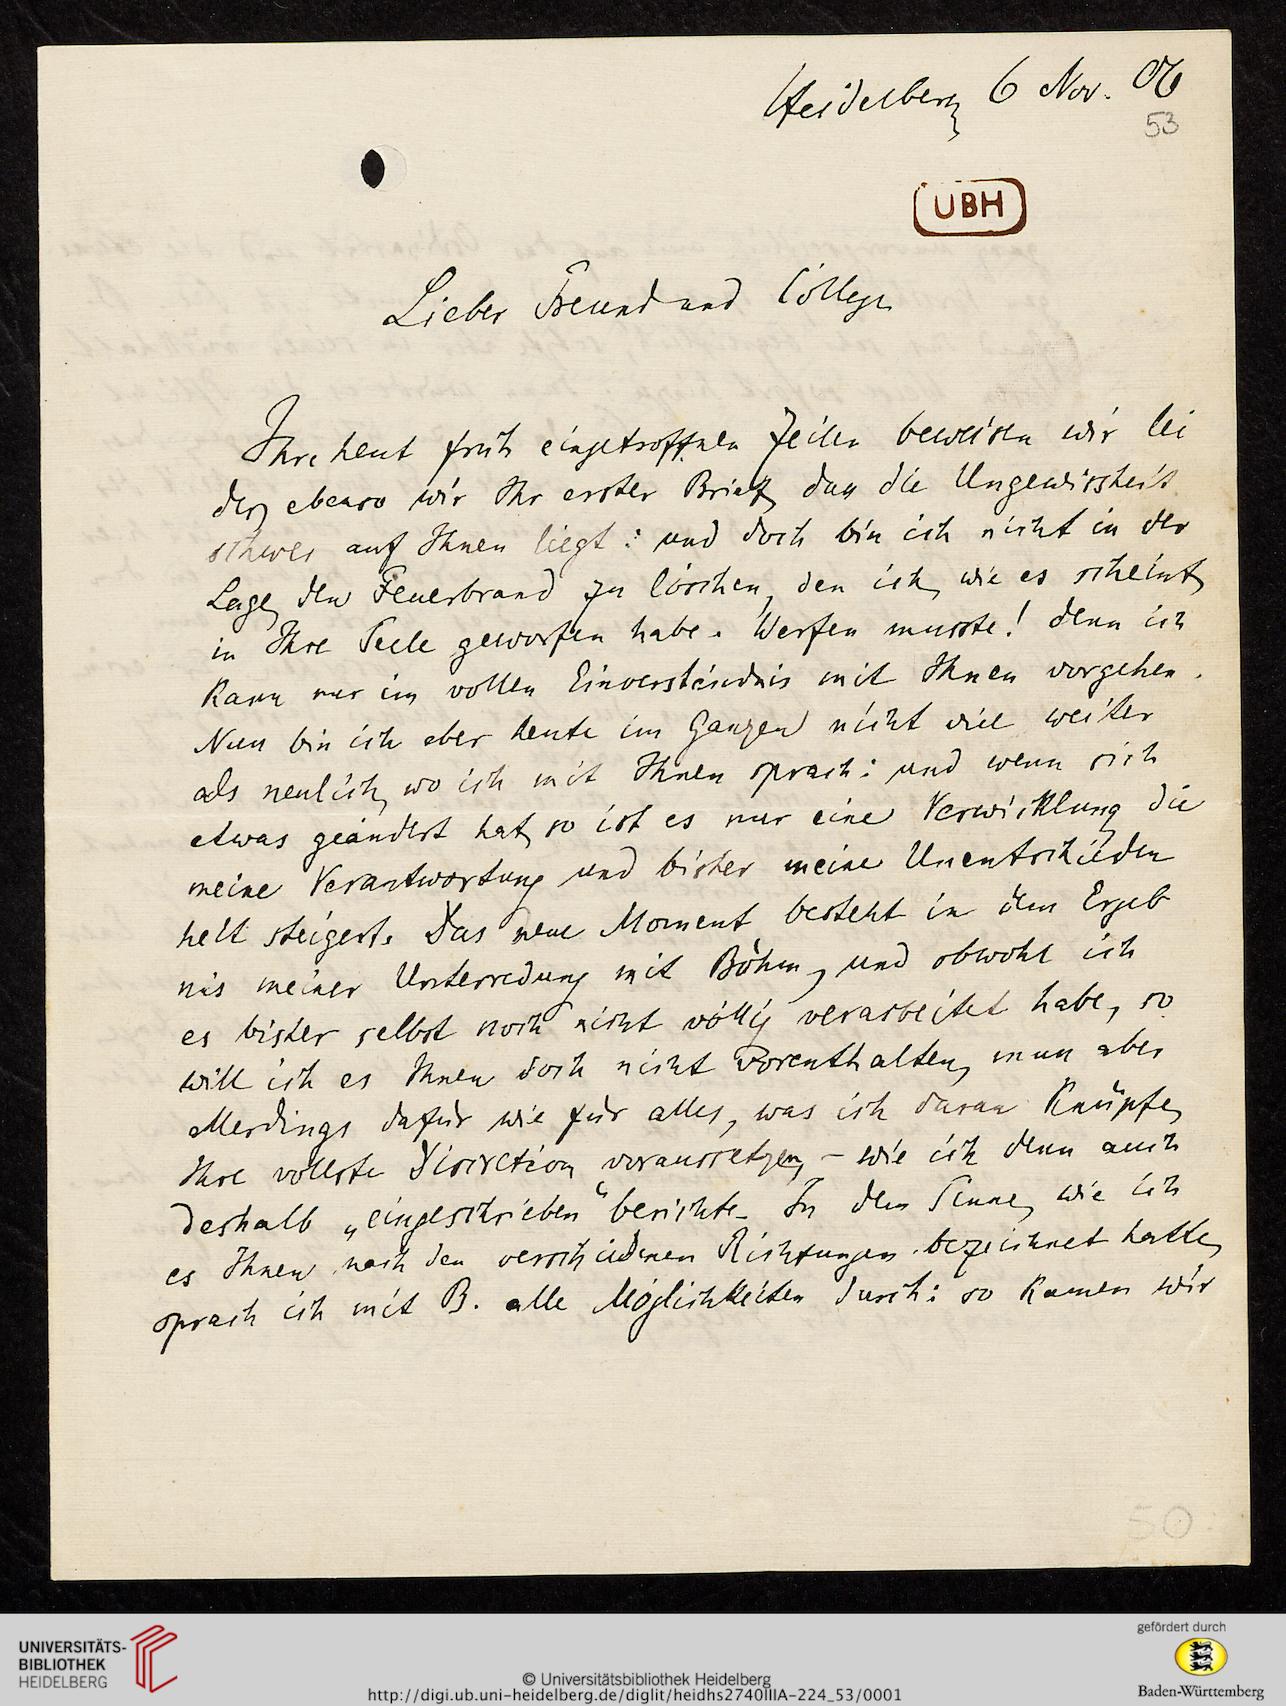 Heidelberg 6 Nov. 06
53
UBH
Lieber Freund und College
Ihre heut früh eingetroffnen Zeilen beweisen mir lei
der, ebenso wie Ihr erster Brief, dass die Ungewissheit
schwer auf Ihnen liegt: und doch bin ich nicht in der
Lage, den Feuerbrand zu löschen, den ich, wie es scheint,
in Ihre Seele geworfen habe. Werfen musste! denn ich
kann nur im vollen Einverständnis mit Ihnen vorgehen.
Nun bin ich aber heute im Ganzen nicht viel weiter
als neulich, wo ich mit Ihnen sprach: und wenn sich
etwas geändert hat, so ist es nur eine Verwicklung die
meine Verantwortung und bisher meine Unentschieden
heit steigert. Das neue Moment besteht in dem Ergeb
nis meiner Unterredung mit Böhm, und obwohl ich
es bisher selbst noch nicht völlig verarbeitet habe, so
will ich es Ihnen doch nicht vorenthalten, muss aber
allerdings dafür wie für alles, was ich daran knüpfe,
Ihre vollste Discretion voraussetzen, – wie ich denn auch
deshalb „eingeschrieben“ berichte. In dem Sinne, wie ich
es Ihnen nach den verschiedenen Richtungen bezeichnet hatte,
sprach ich mit B. alle Möglichkeiten durch: so kamen wir
50
UNIVERSITÄTS-
BIBLIOTHEK
HEIDELBERG
© Universitätsbibliothek Heidelberg
http://digi.ub.uni-heidelberg.de/diglit/heidhs2740IIIA-224_53/0001
gefördert durch
Baden-Württemberg